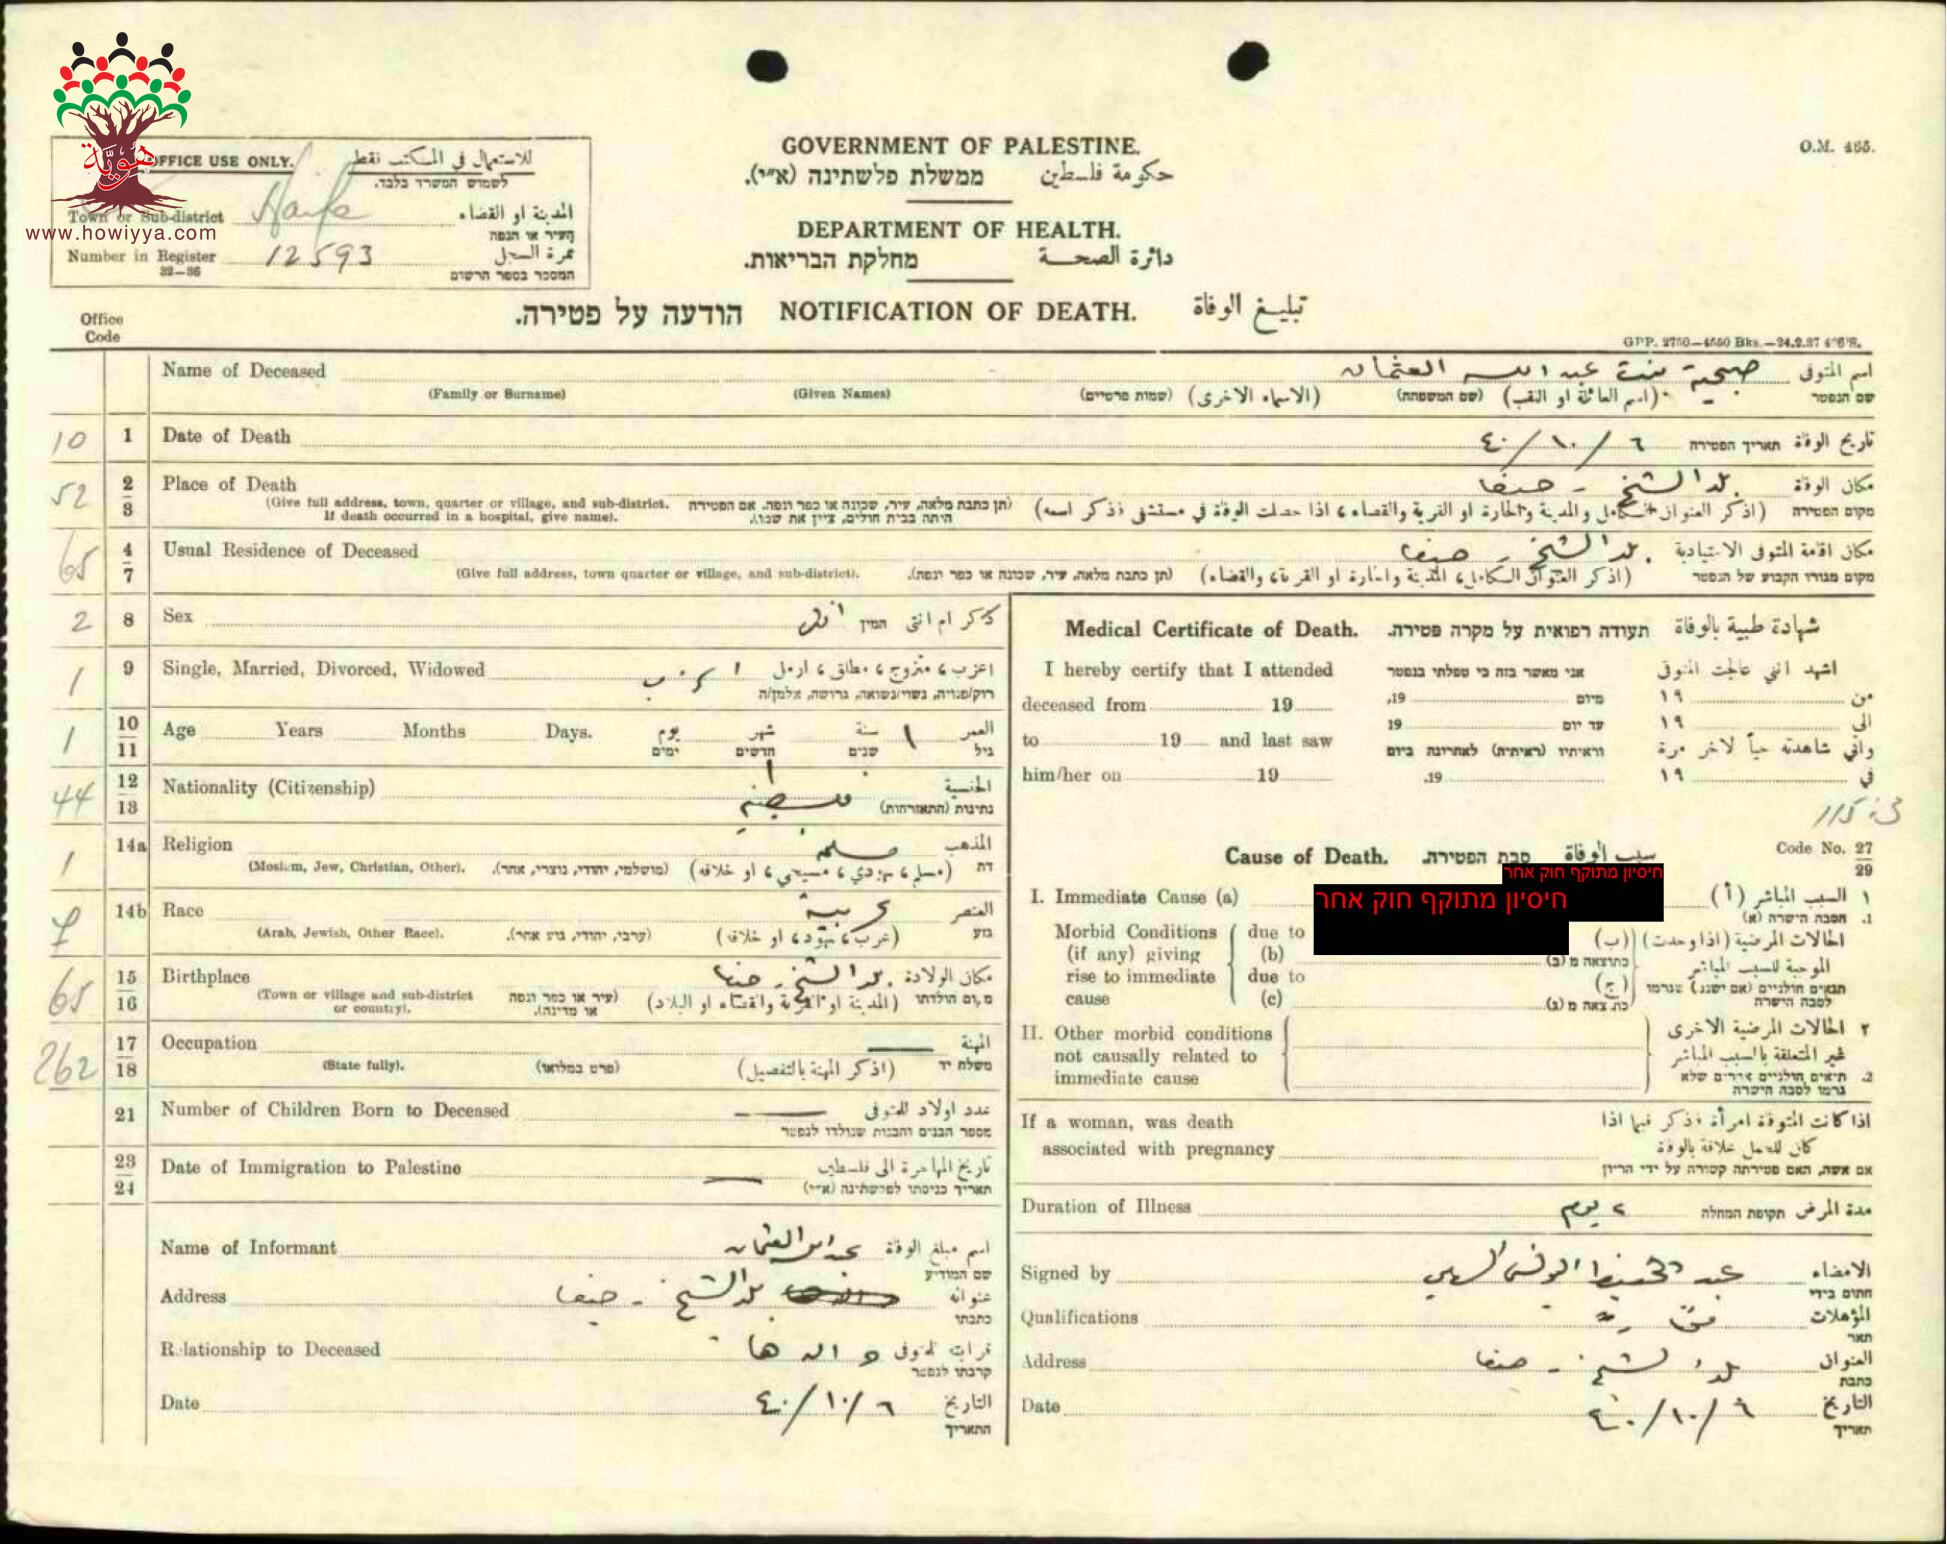 هويّة
www.howiyya.com
OFFICE USE ONLY. للاستعمال في المكتب فقط
לשמוש המשרד בלבד.
Town or Sub-district Haifa المدينة او القضاء
העיר או הנפה
Number in Register 12593 نمرة السجل
32—36 המספר בספר הרשום
GOVERNMENT OF PALESTINE.
ממשלת פלשתינה (א״י). حكومة فلسطين
DEPARTMENT OF HEALTH.
מחלקת הבריאות. دائرة الصحة
O.M. 465.
הודעה על פטירה. NOTIFICATION OF DEATH. تبليغ الوفاة
Office
Code
GPP. 2750—4550 Bks.—24.2.37
Name of Deceased صبحية بنت عبد الله العثمان اسم المتوفى
(Family or Surname) (Given Names) (שמות פרטיים) (الاسماء الاخرى) (שם המשפחה) (اسم العائلة او اللقب) שם הנפטר
10 1 Date of Death ٦/١٠/٤٠ תאריך הפטירה تاريخ الوفاة
52 2 3 Place of Death بلد الشيخ - حيفا مكان الوفاة
(Give full address, town, quarter or village, and sub-district. (תן כתבת מלאה, עיר, שכונה או כפר ונפה. אם הפטירה (اذكر العنوان الكامل والمدينة والحارة او القرية والقضاء، اذا حصلت الوفاة في مستشفى فذكر اسمه) מקום הפטירה
If death occurred in a hospital, give name). היתה בבית חולים, ציין את שמו).
65 4 7 Usual Residence of Deceased بلد الشيخ - حيفا مكان اقامة المتوفى الاعتيادية
(Give full address, town quarter or village, and sub-district). (תן כתבת מלאה, עיר, שכונה או כפר ונפה). (اذكر العنوان الكامل، المدينة والحارة او القرية، والقضاء) מקום מגורו הקבוע של הנפטר
2 8 Sex انثى המין ذكر ام انثى
1 9 Single, Married, Divorced, Widowed اعزب اعزب، متزوج، مطلق، ارمل
רוק/פנויה, נשוי/נשואה, גרושה, אלמן/ה
1 10 11 Age Years Months Days. يوم شهر سنة ١ العمر
ימים חדשים שנים גיל
44 12 13 Nationality (Citizenship) فلسطينية الجنسية
נתינות (התאזרחות)
1 14a Religion مسلمة المذهب
(Moslem, Jew, Christian, Other). (מושלמי, יהודי, נוצרי, אחר). (مسلم، يهودي، مسيحي، او خلافه) דת
14b Race عربية العنصر
(Arab, Jewish, Other Race). (ערבי, יהודי, גזע אחר). (عرب، يهود، او خلافه) גזע
65 15 16 Birthplace بلد الشيخ - حيفا مكان الولادة
(Town or village and sub-district or country). (עיר או כפר ונפה או מדינה). (المدينة او القرية والقضاء او البلاد) מקום הולדתו
262 17 18 Occupation المهنة
(State fully). (פרט במלואו) (اذكر المهنة بالتفصيل) משלח יד
21 Number of Children Born to Deceased عدد اولاد المتوفى
מספר הבנים והבנות שנולדו לנפטר
23 24 Date of Immigration to Palestine تاريخ المهاجرة الى فلسطين
תאריך כניסתו לפלשתינה (א״י)
Name of Informant عبد الله العثمان اسم مبلغ الوفاة
שם המודיע
Address بلد الشيخ - حيفا عنوانه
כתבתו
Relationship to Deceased والدها قرابته للمتوفى
קרבתו לנפטר
Date ٦/١٠/٤٠ التاريخ
התאריך
Medical Certificate of Death. תעודה רפואית על מקרה פטירה. شهادة طبية بالوفاة
I hereby certify that I attended אני מאשר בזה כי טפלתי בנפטר اشهد انني عالجت المتوفى
deceased from 19 19, מיום ١٩ من
to 19 and last saw 19 עד יום ١٩ الى
וראיתיו (ראיתיה) לאחרונה ביום واني شاهدته حياً لآخر مرة
him/her on 19 19. ١٩ في
Cause of Death. סבת הפטירה. سبب الوفاة Code No. 27 29
חיסיון מתוקף חוק אחר
I. Immediate Cause (a) חיסיון מתוקף חוק אחר (أ) السبب المباشر ١
הסבה הישרה (א) 1.
Morbid Conditions due to (ب) الحالات المرضية (اذا وجدت)
(if any) giving (b) כתוצאה מ (ב) الموجبة للسبب المباشر
rise to immediate due to (ج) תנאים חולניים (אם ישנם) שגרמו
cause (c) כתוצאה מ (ג) לסבה הישרה
II. Other morbid conditions الحالات المرضية الاخرى ٢
not causally related to غير المتعلقة بالسبب المباشر
immediate cause תנאים חולניים אחרים שלא 2.
גרמו לסבה הישרה
If a woman, was death اذا كانت المتوفاة امرأة فذكر فيما اذا
associated with pregnancy كان للحمل علاقة بالوفاة
אם אשה, האם פטירתה קשורה על ידי הריון
Duration of Illness ٢ يوم תקופת המחלה مدة المرض
Signed by عبد الحفيظ الامضاء
חתום בידי
Qualifications المؤهلات
תאר
Address بلد الشيخ - حيفا العنوان
כתבת
Date ٦/١٠/٤٠ التاريخ
תאריך